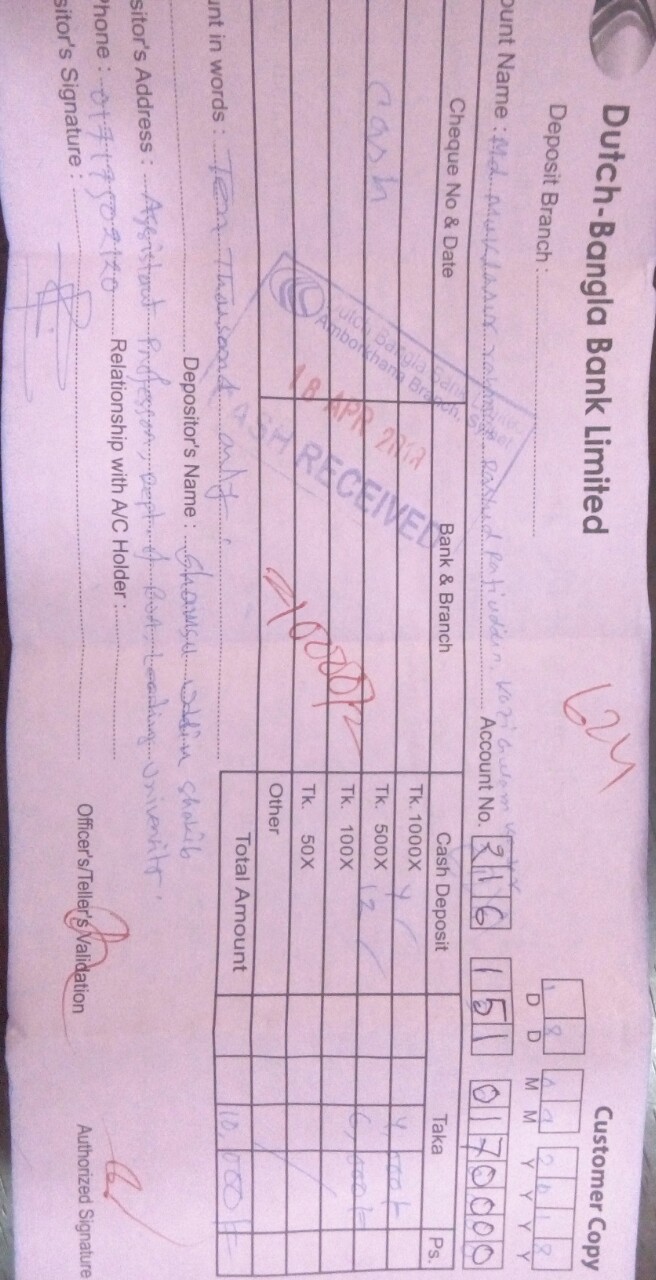 Dutch-Bangla Bank Limited
Customer Copy
624
Deposit Branch :
18 2018
D D M M Y Y Y Y
ount Name : Md.
Account No. 216 151 0170000
Cheque No & Date
Bank & Branch
Cash Deposit
Taka
Ps.
Tk. 1000X 4 4,000/-
Cash
Tk. 500X 12 6,000/-
Tk. 100X
Tk. 50X
Other
Total Amount 10,000/-
10000/=
Dutch Bangla Bank
Amborkhana Branch, Sylhet
18 APR
CASH RECEIVED
unt in words : Ten Thousand only.
Depositor's Name : Shamsu Uddin Shakib
sitor's Address : Assistant Professor, Dept. of Leading University.
Phone : Relationship with A/C Holder :
sitor's Signature :
Officer's/Teller's Validation
Authorized Signature